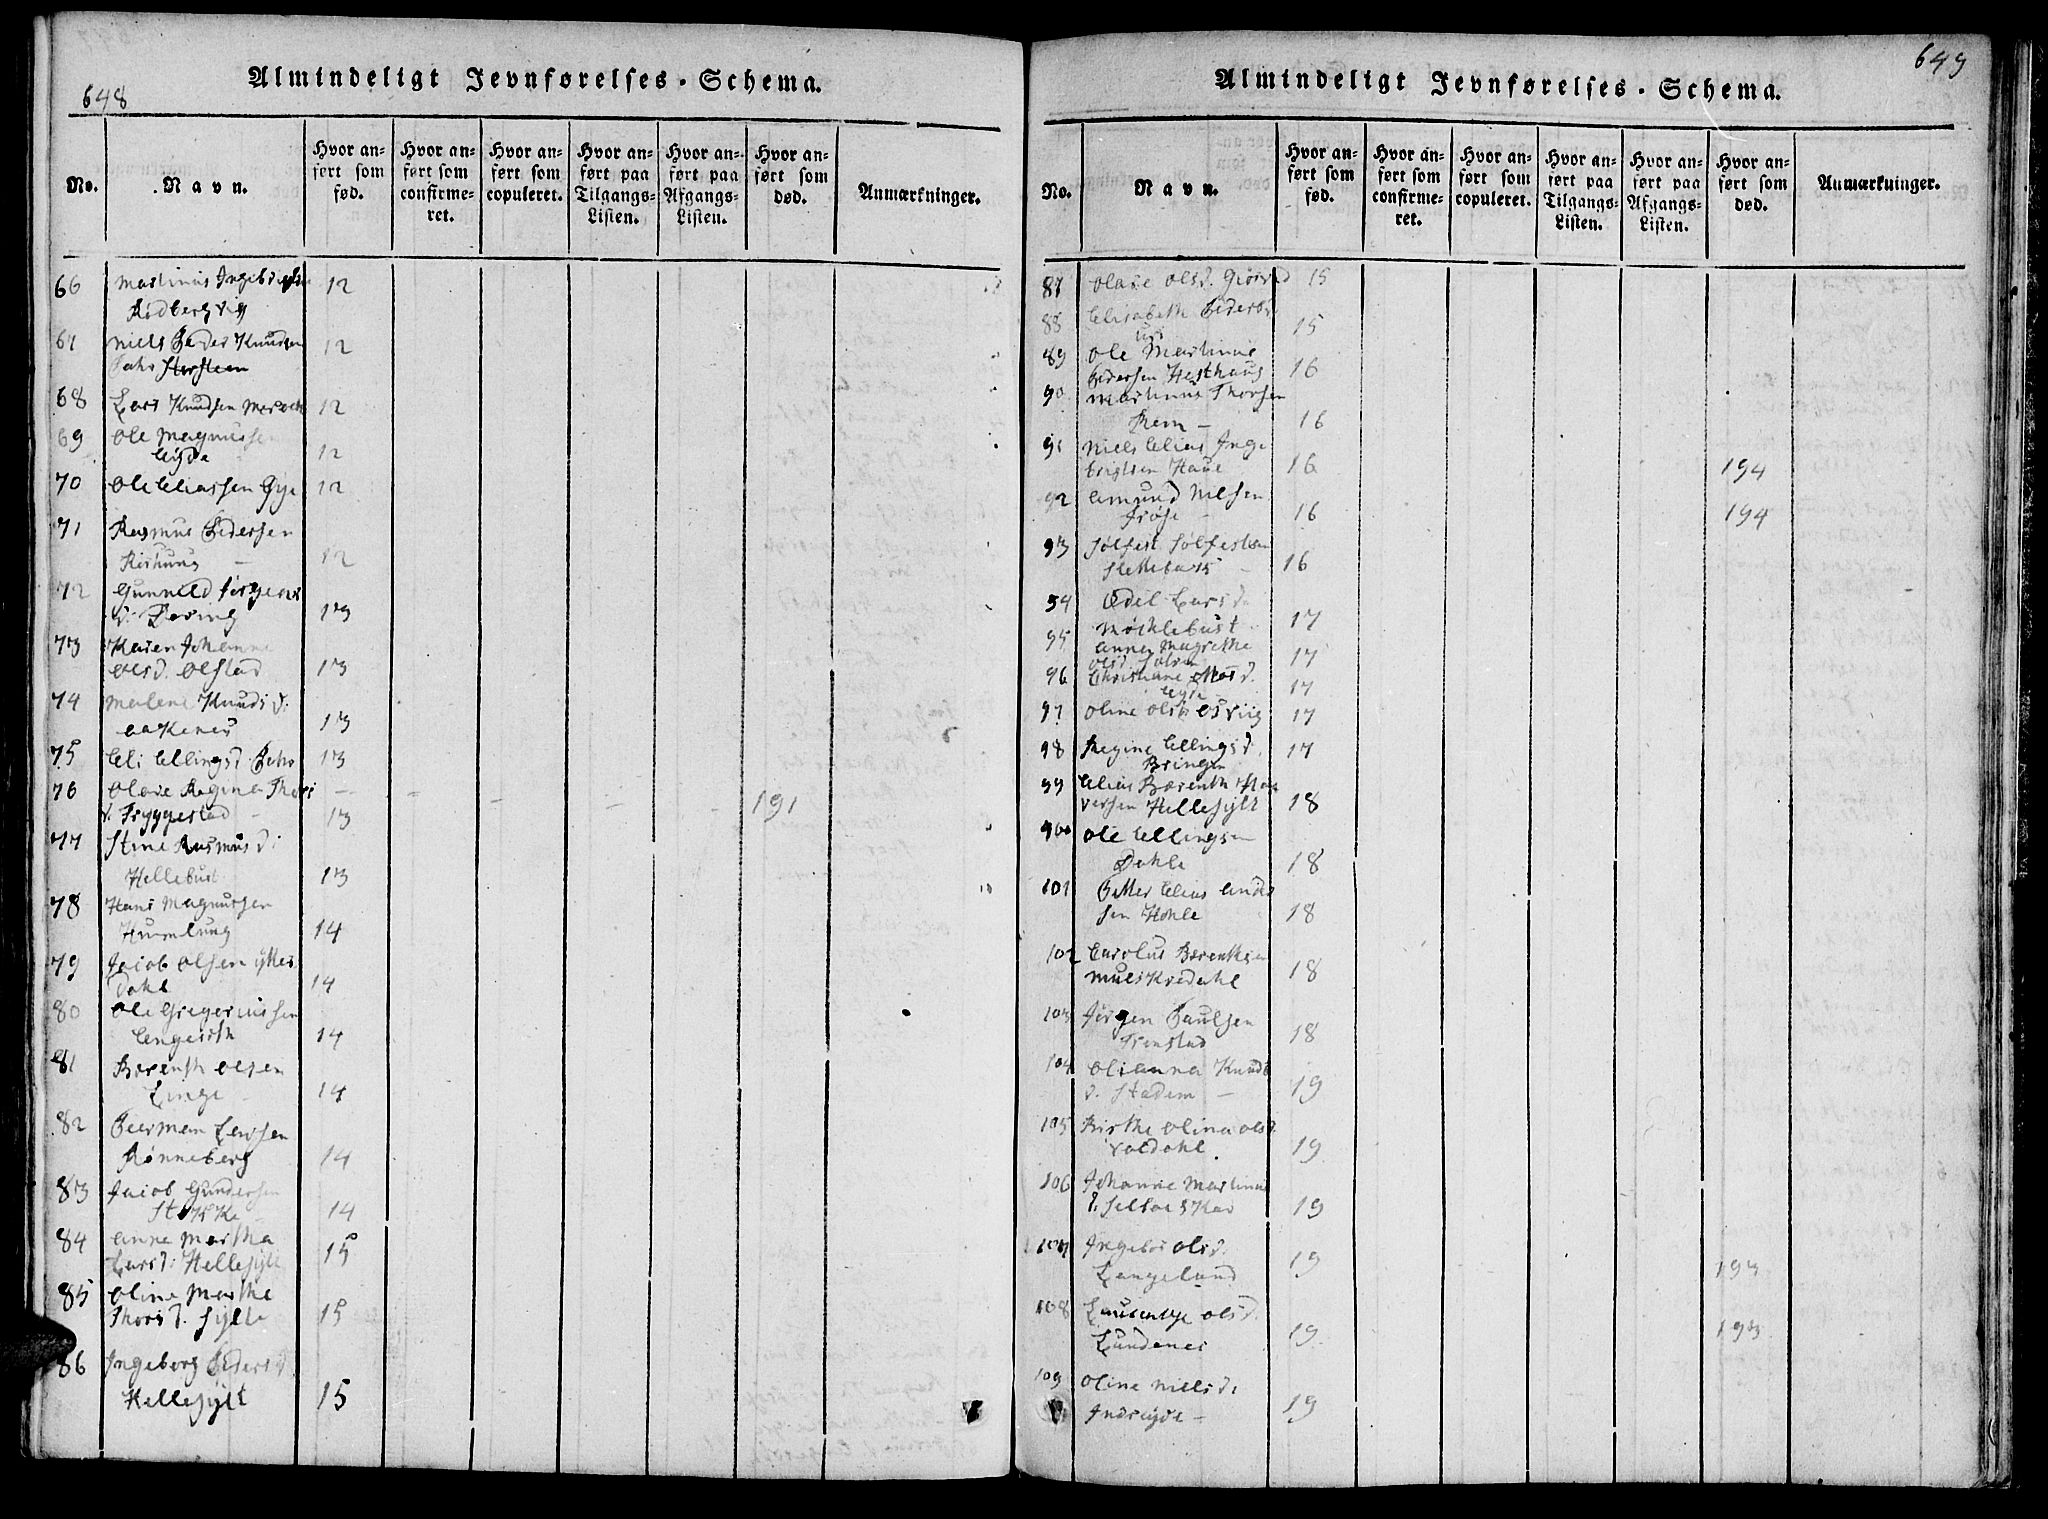 648
Almindeligt Jevnførelses-Schema.
No.
Navn.
Hvor an-
ført som
fød.
Hvor an-
ført som
confirme-
ret.
Hvor an-
ført som
copuleret.
Hvor an-
ført paa
Tilgangs-
Listen.
Hvor an-
ført paa
Afgangs-
Listen.
Hvor an-
ført som
død.
Anmærkninger.
66 Martinus 12
Rødbergvig
67 Niels Peder Knudsen 12
68 Lars Knudsen 12
69 Ole Magnussen
Eyde 12
70 Ole Eliassen 12
71 Rasmus Pedersen
12
72 Gunneld
13
73 Karen Johanne
Olsd. Olstad 13
74 Malene Knuds d.
aaKenes 13
75 Eli Ellingsd. 13
76 Olave Regina
d. Tryggestad 13 191
77 Stine Rasmus d:
Hellebust 13
78 Hans Magnussen
Humlung 14
79 Jacob Olsen ytter
Dahl 14
80 Ole Gregeriussen
14
81 Berenth Olsen
Linge 14
82 Peerman Larsen
Rønneberg 14
83 Jacob Gundersen
14
84 Anne Martha
Larsd: Hellesylt 15
85 Oline Marthe
Thorsd. Sylte 15
86 Ingeborg Peders d.
Hellesylt 15
649
Almindeligt Jevnførelses-Schema.
No.
Navn.
Hvor an-
ført som
fød.
Hvor an-
ført som
confirme-
ret.
Hvor an-
ført som
copuleret.
Hvor an-
ført paa
Tilgangs-
Listen.
Hvor an-
ført paa
Afgangs-
Listen.
Hvor an-
ført som
død.
Anmærkninger.
87 Olave Olsd. 15
88 Elisabeth
15
89 Ole Martinus
Pedersen Hesthaug 16
90 Martinus Thorsen
Rem - 16
91 Niels Elias Inge
brigtsen Haue 16 194
92 Amund Nilsen
Frøse - 16 194
93 Sølfest Sølfestsen
Slettebars 16
94 Odel Larsd.
Mørklebust 17
95 Anne Magrethe
Olsd. 17
96 Christiane
17
97 Oline Olsd. 17
98 Regine Ellings d. 17
Bringen
99 Elias Berenth
versen Hellesylt 18
100 Ole Ellingsen
Dahle 18
101 Petter Elias Ander
sen Hohle 18
102 Carolus Berenthsen
18
103 Jørgen Paulsen
18
104 Olianna Knuds
d. Stadem - 19
105 Birthe Olina Olsd.
Valdahl. 19
106 Johanne Martinus
19
107 Ingebor Olsd.
Langeland 19 193
108 Laurentse Olsd.
Lundenes 19 193
109 Oline Niels d:
Indreeyde - 19